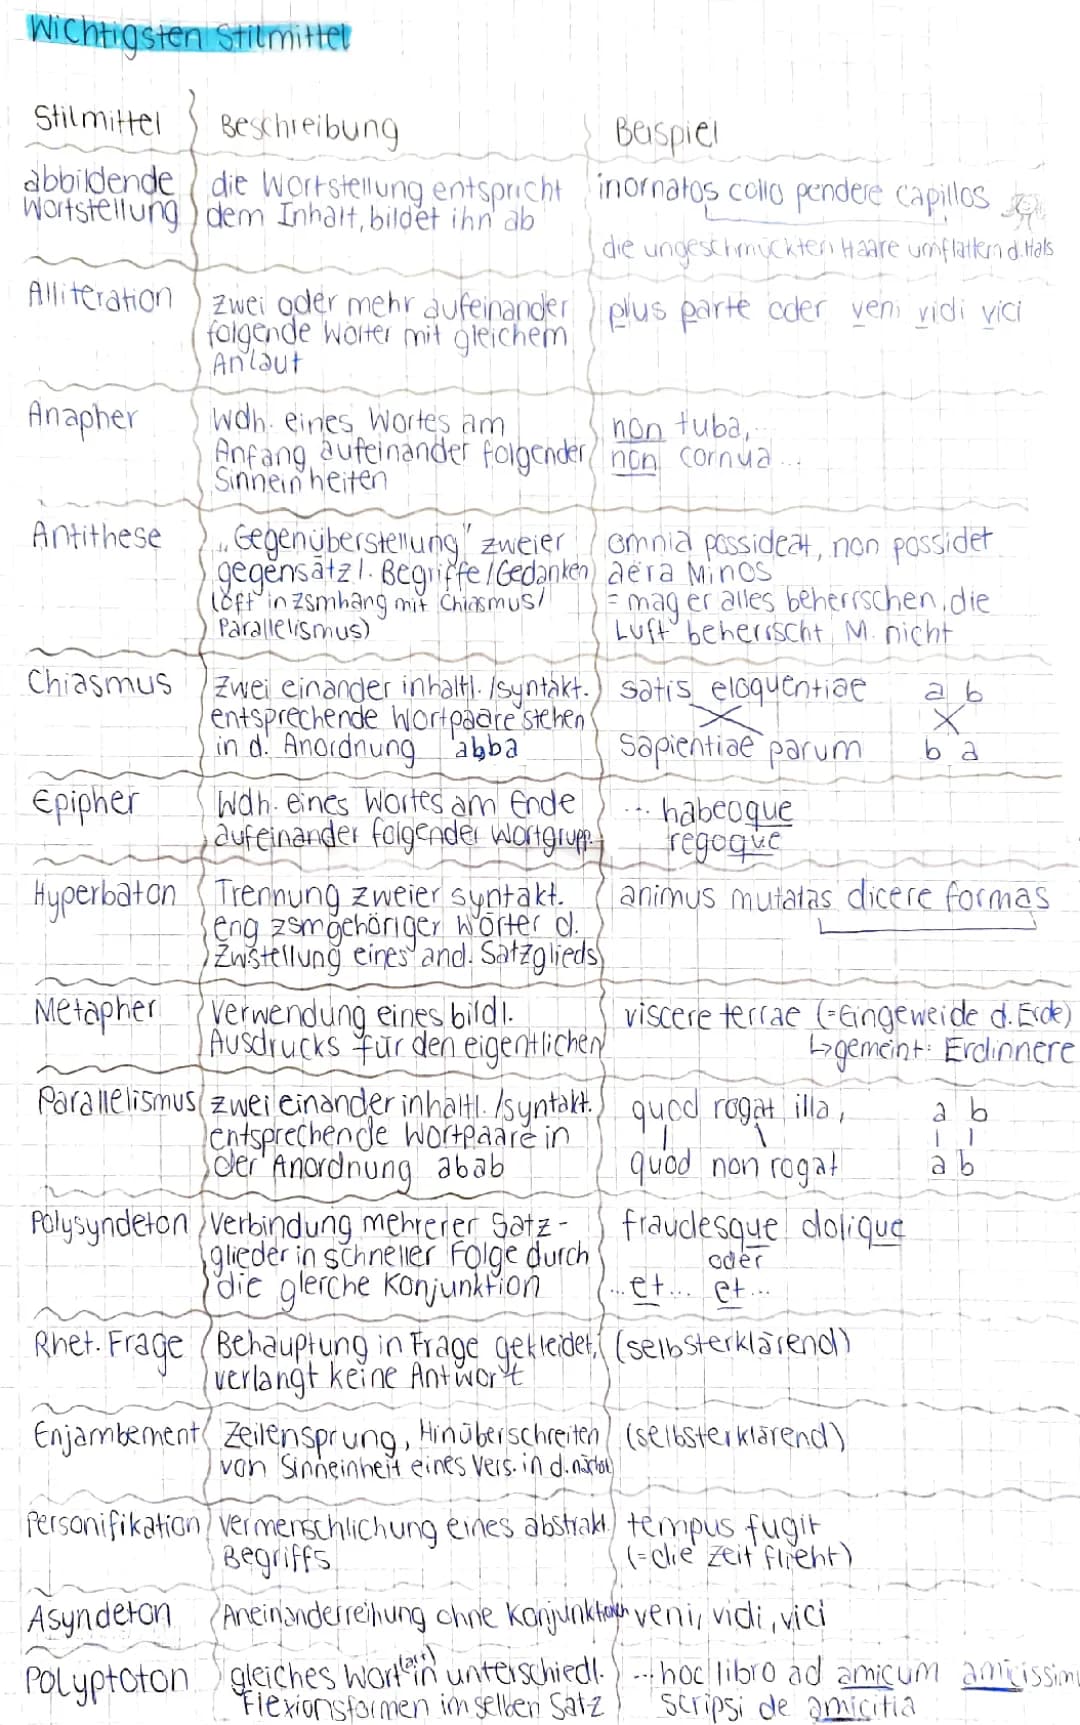 Wichtigsten Stilmittel
Stilmittel Beschreibung Beispiel
abbildende Wortstellung
die Wortstellung entspricht
dem Inhalt, bildet ihn ab
inornatos collo pendere capillos
die ungeschmückten Haare umflattern d. Hals
Alliteration
zwei oder mehr aufeinander
folgende Wörter mit gleichem
Anlaut
plus parte oder veni vidi vici
Anapher
Wdh. eines Wortes am
Anfang aufeinander folgender
Sinneinheiten
non tuba,...
non cornua...
Antithese
"Gegenüberstellung" zweier
gegensätzl. Begriffe/Gedanken
(oft in zsmhang mit Chiasmus/
Parallelismus)
omnia possideat, non possidet
aera Minos
= mag er alles beherrschen, die
Luft beherrscht M. nicht
Chiasmus
zwei einander inhaltl./syntakt.
entsprechende Wortpaare stehen
in d. Anordnung abba
satis eloquentiae a b
sapientiae parum b a
Epipher
Wdh. eines Wortes am Ende
aufeinander folgender Wortgrupp.
... habeoque
regoque
Hyperbaton
Trennung zweier syntakt.
eng zsmgehöriger Wörter d.
Zwstellung eines and. Satzglieds
animus mutatas dicere formas
Metapher
Verwendung eines bildl.
Ausdrucks für den eigentlichen
viscere terrae (=Eingeweide d. Erde)
↳gemeint: Erdinnere
Parallelismus
zwei einander inhaltl./syntakt.
entsprechende Wortpaare in
der Anordnung abab
quod rogat illa, a b
quod non rogat a b
Polysyndeton
Verbindung mehrerer Satz-
glieder in schneller Folge durch
die gleiche Konjunktion
fraudesque dolique
oder
...et... et...
Rhet. Frage
Behauptung in Frage gekleidet,
verlangt keine Antwort
(selbsterklärend)
Enjambement
Zeilensprung, Hinüberschreiten
von Sinneinheit eines Vers. in d.
(selbsterklärend)
Personifikation
Vermenschlichung eines abstrakt.
Begriffs
tempus fugit
(=die Zeit flieht)
Asyndeton
Aneinanderreihung ohne Konjunktion
veni, vidi, vici
Polyptoton
gleiches Wort in unterschiedl.
Flexionsformen im selben Satz
...hoc libro ad amicum amicissim
scripsi de amicitia